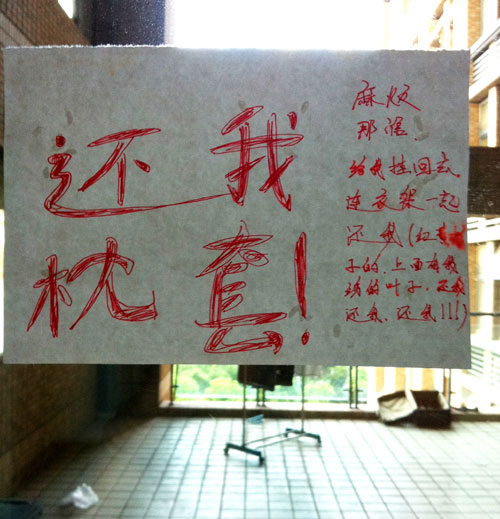 还我
枕套!
麻烦
那谁.
给我挂回去
连衣架一起
还我(红
子的.上面有我
绣的叶子.还我
还我.还我!!!)